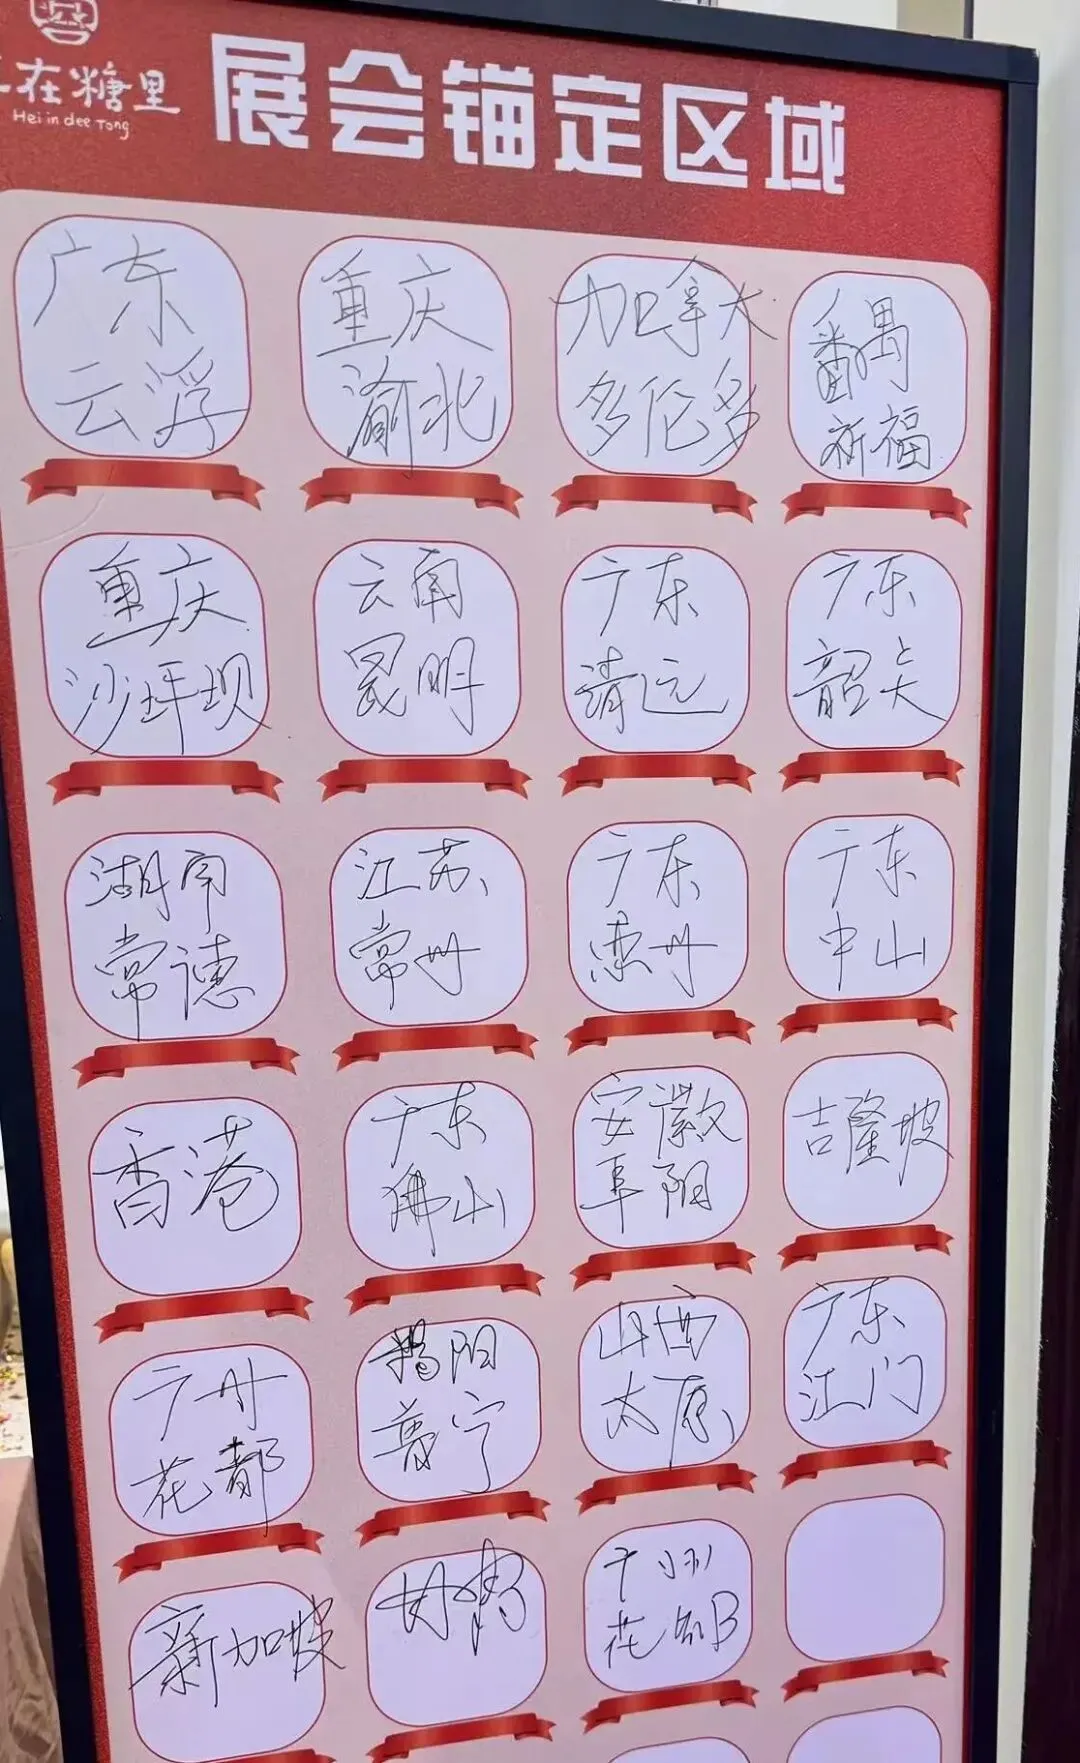 在糖里
Hei in dee Tong
展会锚定区域
广东
云浮
重庆
渝北
加拿大
多伦多
番禺
祈福
重庆
沙坪坝
云南
昆明
广东
清远
广东
韶关
湖南
常德
江苏
常州
广东
惠州
广东
中山
香港
广东
佛山
安徽
阜阳
吉隆坡
广州
花都
揭阳
普宁
山西
太原
广东
江门
新加坡
甘肃
广州
花都